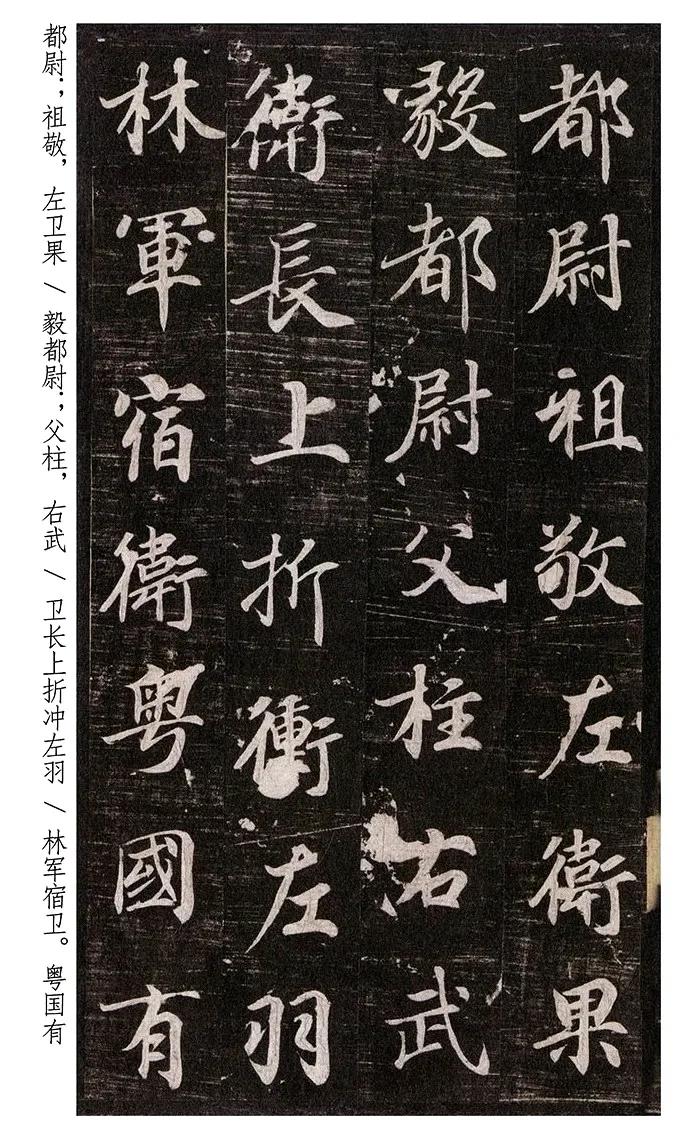 都尉祖敬左衛果
毅都尉父柱右武
衛長上折衝左羽
林軍宿衛粵國有
都尉；祖敬，左卫果 \ 毅都尉；父柱，右武 \ 卫长上折冲左羽 \ 林军宿卫。粤国有